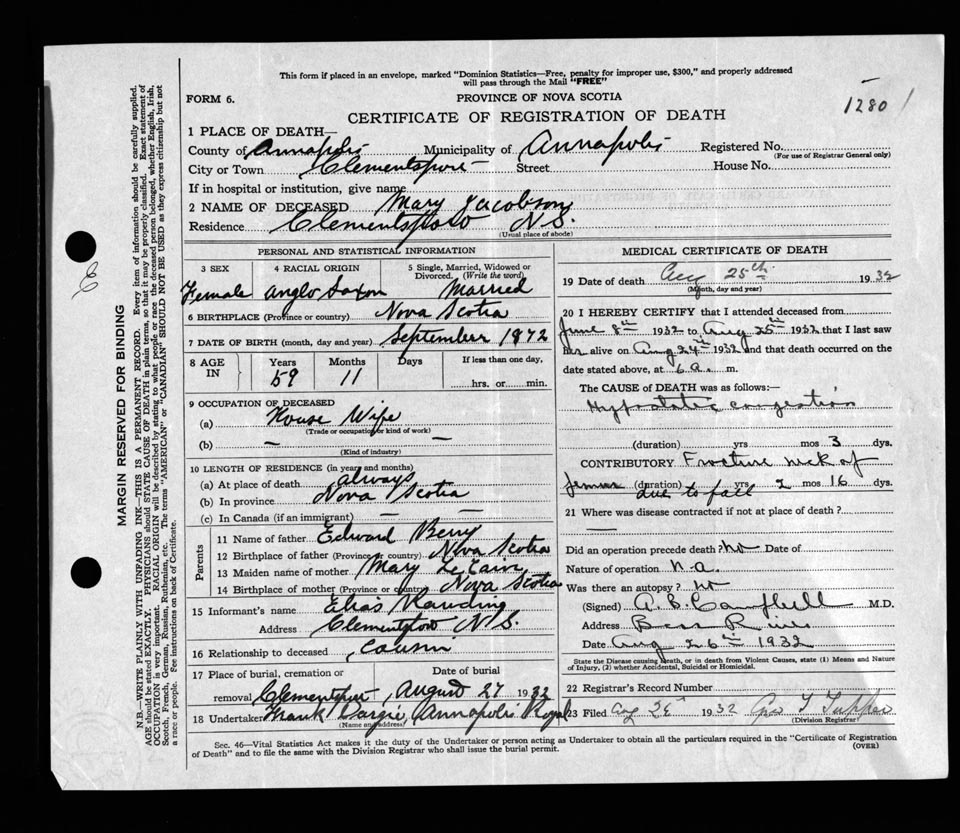 This form if placed in an envelope, marked "Dominion Statistics—Free, penalty for improper use, $300," and properly addressed
will pass through the Mail "FREE"
FORM 6.
PROVINCE OF NOVA SCOTIA
1280
CERTIFICATE OF REGISTRATION OF DEATH
1 PLACE OF DEATH—
County of Annapolis Municipality of Annapolis Registered No.
(For use of Registrar General only)
City or Town Clementsport Street House No.
If in hospital or institution, give name
2 NAME OF DECEASED Mary Jacobson
Residence Clementsport N.S.
(Usual place of abode)
PERSONAL AND STATISTICAL INFORMATION
3 SEX 4 RACIAL ORIGIN 5 Single, Married, Widowed or
Divorced. (Write the word)
Female Anglo Saxon Married
6 BIRTHPLACE (Province or country) Nova Scotia
7 DATE OF BIRTH (month, day and year) September 1872
8 AGE IN Years Months Days If less than one day,
59 11 hrs. or min.
9 OCCUPATION OF DECEASED
(a) House Wife
(Trade or occupation or kind of work)
(b) — —
(Kind of industry)
10 LENGTH OF RESIDENCE (in years and months)
(a) At place of death always
(b) In province Nova Scotia
(c) In Canada (if an immigrant) — —
Parents
11 Name of father Edward Berry
12 Birthplace of father (Province or country) Nova Scotia
13 Maiden name of mother Mary LeCain
14 Birthplace of mother (Province or country) Nova Scotia
15 Informant's name Elias
Address Clementsport N.S.
16 Relationship to deceased cousin
17 Place of burial, cremation or Date of burial
removal Clementsport, August 27 1932
18 Undertaker Frank Dargie Annapolis Royal
(Name and address)
MEDICAL CERTIFICATE OF DEATH
19 Date of death Aug 25th 1932
(Month, day and year)
20 I HEREBY CERTIFY that I attended deceased from
June 8th 1932 to Aug 25th 1932 that I last saw
her alive on Aug 24th 1932 and that death occurred on the
date stated above, at 6 a. m.
The CAUSE OF DEATH was as follows:—
Hypostatic congestion
(duration) yrs mos 3 dys.
CONTRIBUTORY Fracture neck of
femur (duration) yrs 2 mos 16 dys.
due to fall
21 Where was disease contracted if not at place of death?
Did an operation precede death? no Date of
Nature of operation n.a.
Was there an autopsy? no
(Signed) A. B. Campbell M.D.
Address Bear River
Date Aug 26th 1932
State the Disease causing Death, or in death from Violent Causes, state (1) Means and Nature
of Injury, (2) whether Accidental, Suicidal or Homicidal.
22 Registrar's Record Number
23 Filed Aug 1932 Tupper
(Division Registrar)
Sec. 46—Vital Statistics Act makes it the duty of the Undertaker or person acting as Undertaker to obtain all the particulars required in the "Certificate of Registration
of Death" and to file the same with the Division Registrar who shall issue the burial permit.
(OVER)
MARGIN RESERVED FOR BINDING
N.B.—WRITE PLAINLY WITH UNFADING INK—THIS IS A PERMANENT RECORD. Every item of information should be carefully supplied.
AGE should be stated EXACTLY. PHYSICIANS should STATE CAUSE OF DEATH in plain terms, so that it may be properly classified. Exact statement of
OCCUPATION is very important. RACIAL ORIGIN will be described by stating to what people or race the deceased person belonged, whether English, Irish,
Scotch, French, German, Russian, Ruthenian, etc. The terms "AMERICAN" or "CANADIAN" SHOULD NOT BE USED as they express citizenship but not
a race or people. See instructions on back of Certificate.